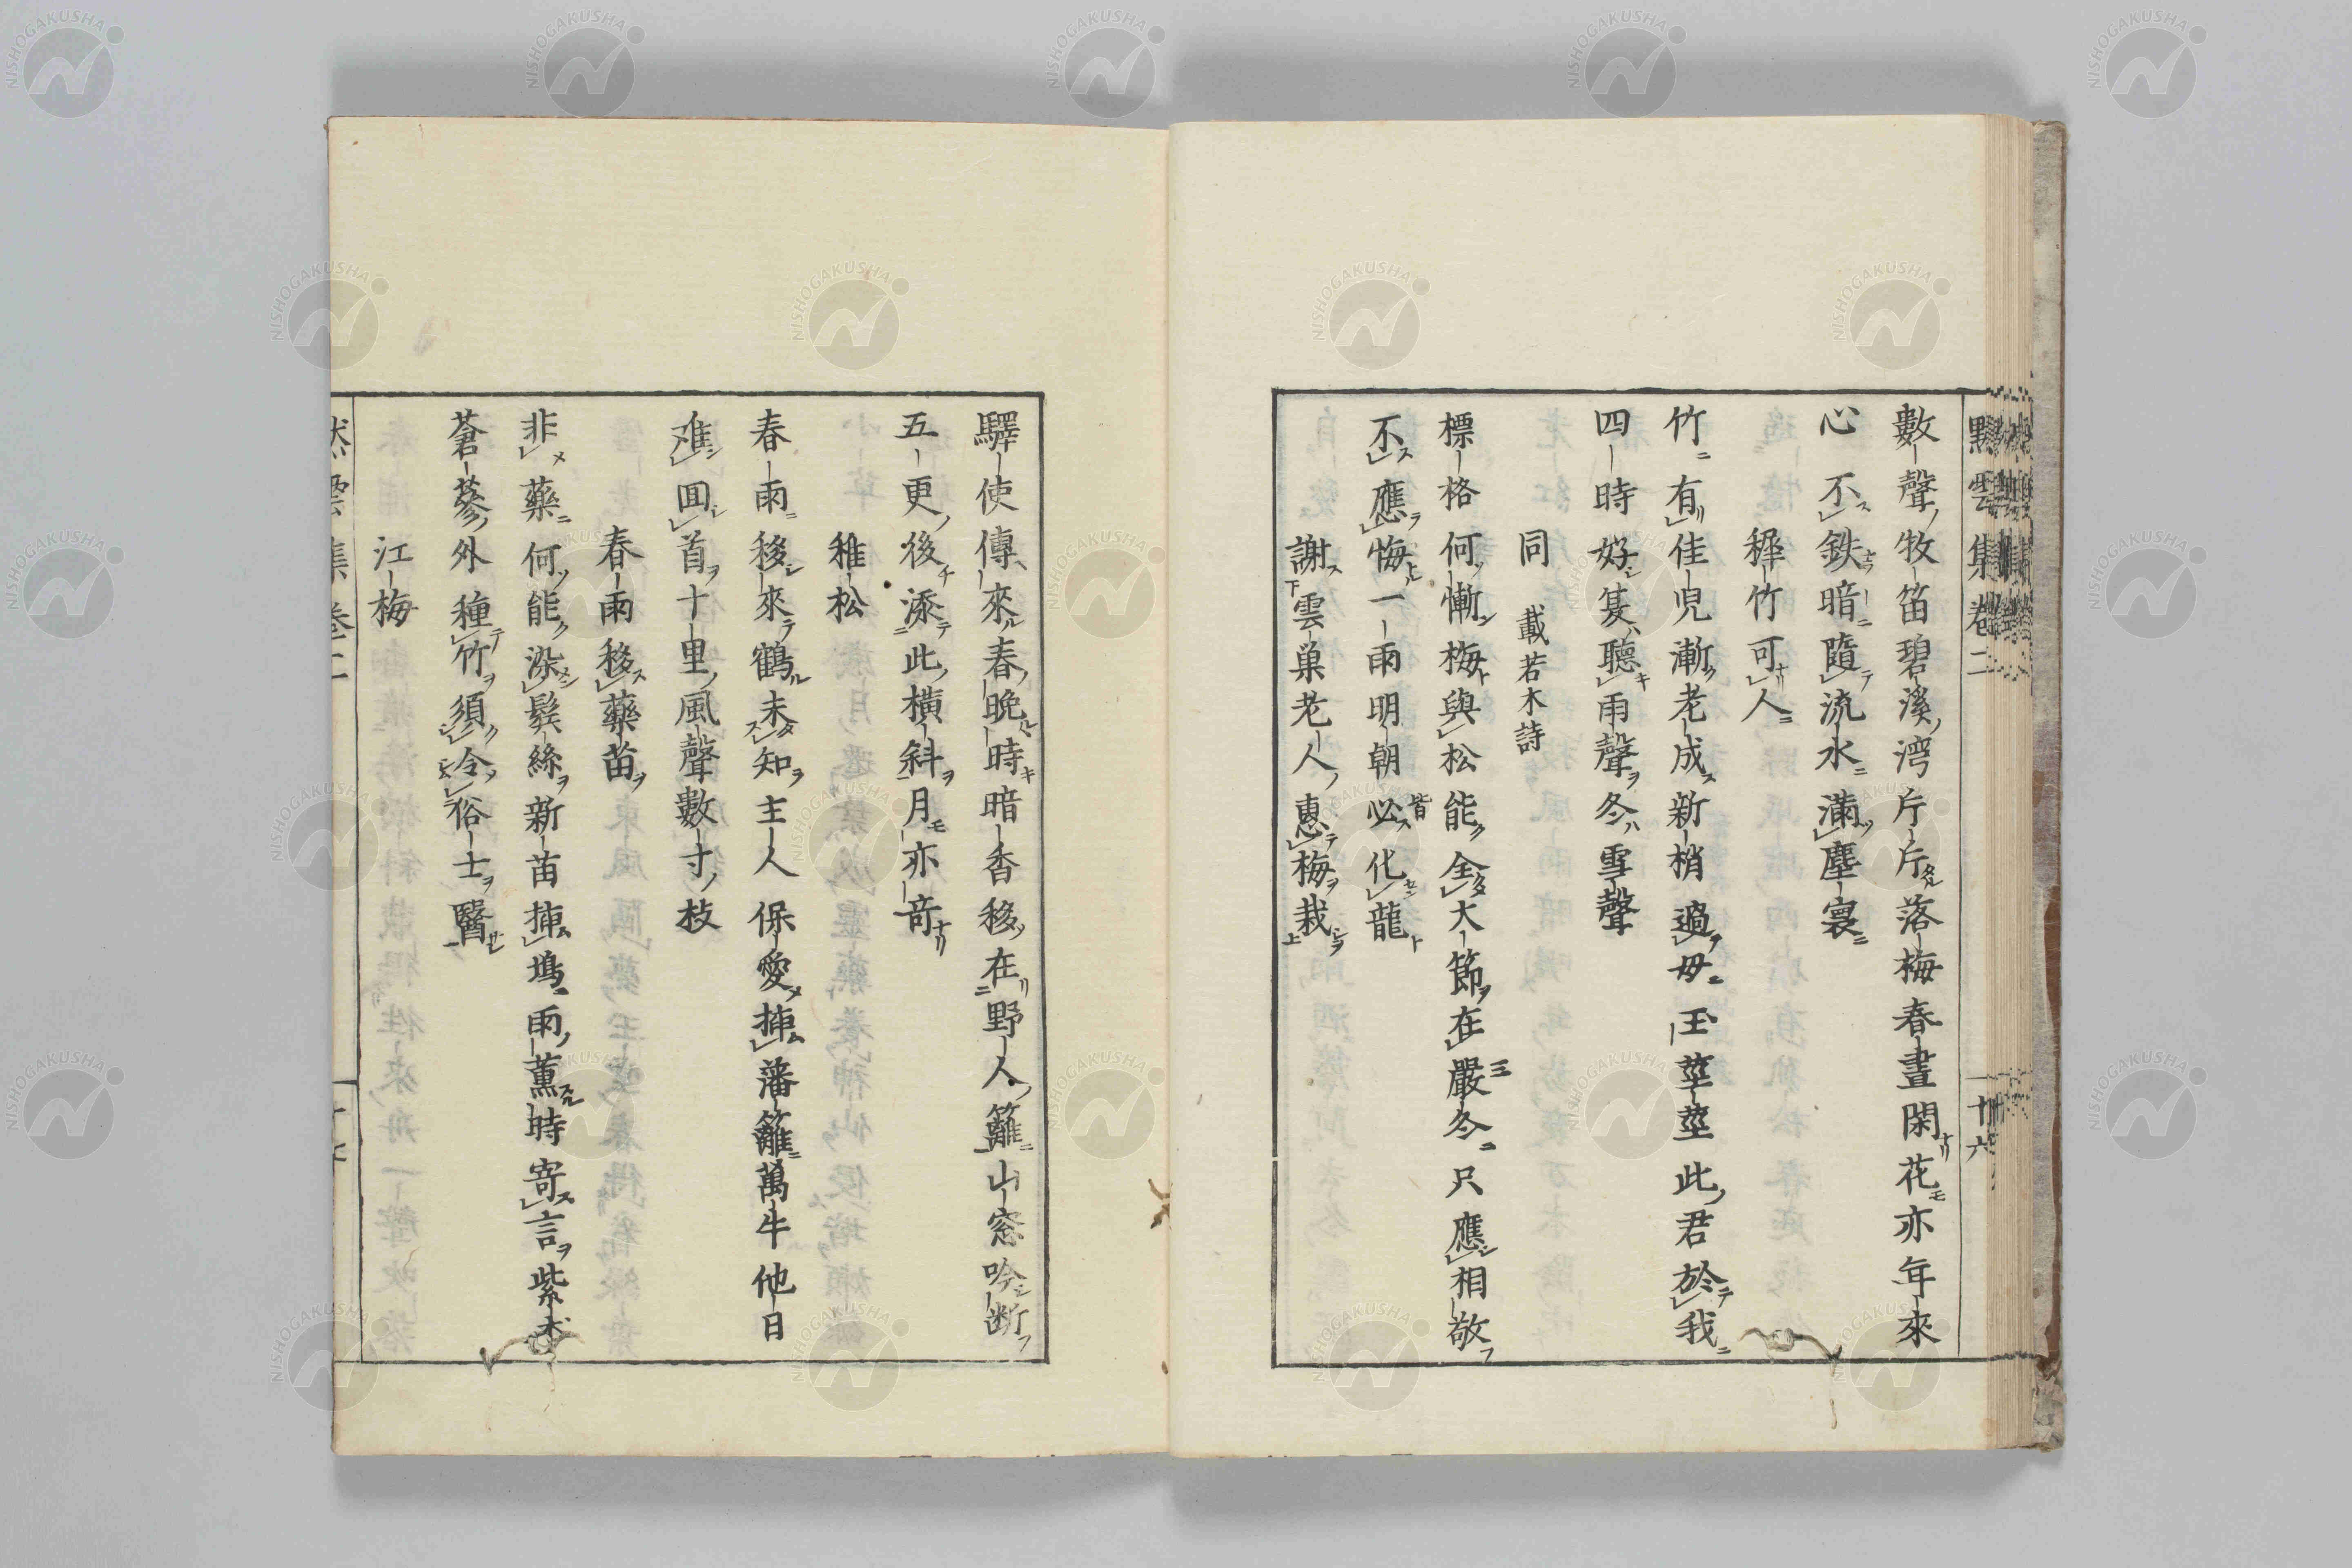 默雲集卷二 十六
數聲牧笛碧溪湾片片落梅春晝閑花亦年來
心不鉄暗隨流水滿塵寰
穉竹可人
竹有佳兒漸老成新梢過母玉莖莖此君於我
四時好夏聽雨聲冬雪聲
同 載若木詩
標格何慚梅與松能全大節在嚴冬只應相敬
不應悔一雨明朝必化龍
謝雲巣老人惠梅栽
驛使傳來春晩時暗香移在野人籬山窓吟断
五更後添此橫斜月亦奇
稚松
春雨移來鶴未知主人保愛挿藩籬萬牛他日
難回首十里風聲數寸枝
春雨移藥苗
非藥何能染鬂絲新苗挿塢雨薫時寄言紫朮
蒼蔘外種竹須令俗士醫
江梅